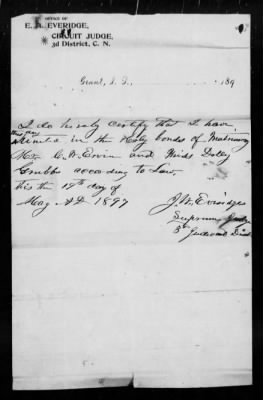 OFFICE OF
E. H. EVERIDGE,
CIRCUIT JUDGE,
3d District, C. N.
Grant, I. T., 189
I do hereby certify that I have
this day united in the Holy bonds of Matrimony
Mr. C. W. Ervin and Miss Dolly
Grubbs according to Law.
this the 17th day of
May AD 1897
J. W. Everidge
Supreme Judge
3rd Judicial Dist